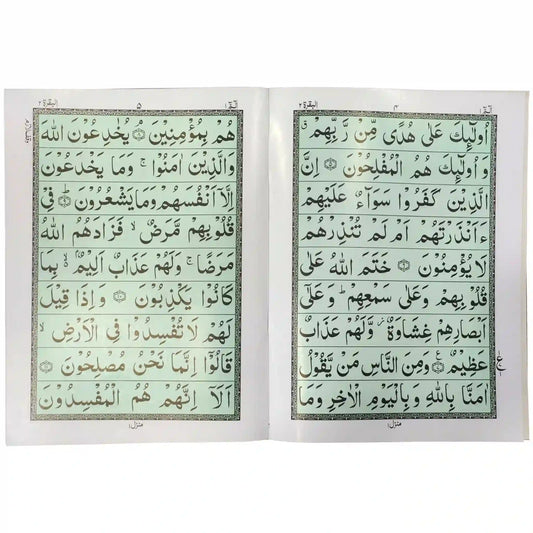 الٓمّٓ ١
۴
البقرة ٢
اُولٰٓئِكَ عَلٰى هُدًى مِّنْ رَّبِّهِمْ ۙ
وَ اُولٰٓئِكَ هُمُ الْمُفْلِحُوْنَ ۝ اِنَّ
الَّذِيْنَ كَفَرُوْا سَوَآءٌ عَلَيْهِمْ
ءَاَنْذَرْتَهُمْ اَمْ لَمْ تُنْذِرْهُمْ
لَا يُؤْمِنُوْنَ ۝ خَتَمَ اللّٰهُ عَلٰى
قُلُوْبِهِمْ وَعَلٰى سَمْعِهِمْ ؕ وَعَلٰٓى
اَبْصَارِهِمْ غِشَاوَةٌ ؗ وَّلَهُمْ عَذَابٌ
عَظِيْمٌ ۝ وَمِنَ النَّاسِ مَنْ يَّقُوْلُ
اٰمَنَّا بِاللّٰهِ وَبِالْيَوْمِ الْاٰخِرِ وَمَا
منزل ١
الٓمّٓ ١
۵
البقرة ٢
هُمْ بِمُؤْمِنِيْنَ ۝ يُخٰدِعُوْنَ اللّٰهَ
وَالَّذِيْنَ اٰمَنُوْا ۚ وَمَا يَخْدَعُوْنَ
اِلَّاۤ اَنْفُسَهُمْ وَمَا يَشْعُرُوْنَ ۝ فِيْ
قُلُوْبِهِمْ مَّرَضٌ ۙ فَزَادَهُمُ اللّٰهُ
مَرَضًا ۚ وَلَهُمْ عَذَابٌ اَلِيْمٌۢ ۙ بِمَا
كَانُوْا يَكْذِبُوْنَ ۝ وَاِذَا قِيْلَ
لَهُمْ لَا تُفْسِدُوْا فِي الْاَرْضِ ۙ
قَالُوْۤا اِنَّمَا نَحْنُ مُصْلِحُوْنَ ۝
اَلَاۤ اِنَّهُمْ هُمُ الْمُفْسِدُوْنَ
منزل ١